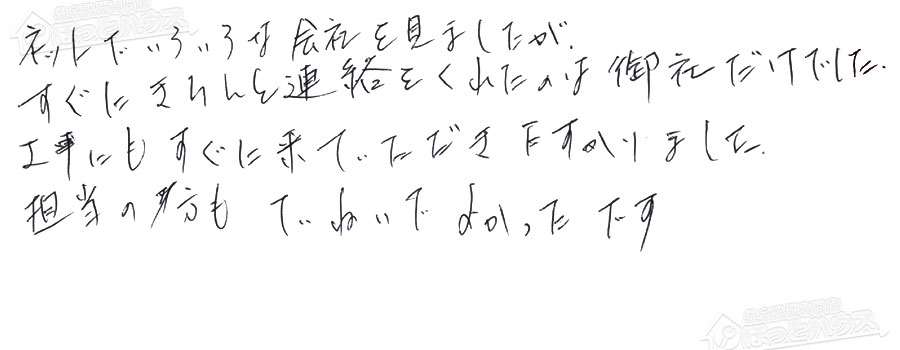 ネットでいろいろな会社を見ましたが、
すぐにきちんと連絡をくれたのは御社だけでした。
工事にもすぐに来ていただき下すかりました。
担当の方も ていねいで よかったです
ほっとハウス
ほっとハウス